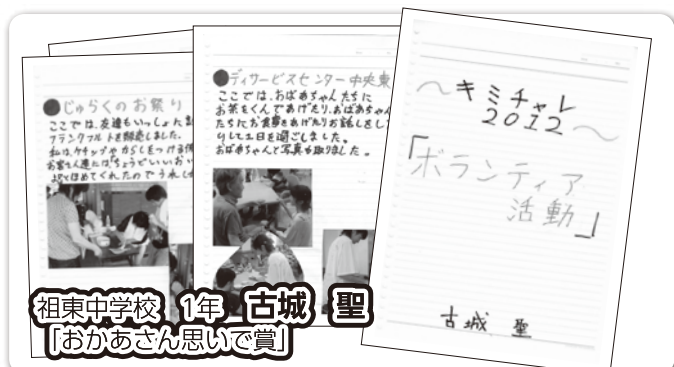 ●じゅらくのお祭り
ここでは、友達もいっしょに
フランクフルトを販売しました。
私は、ケチャップやカラシをつける
お客さん達には「ちょうどいい
とほめてくれたのでうれし
●デイサービスセンター中央東
ここでは、おばあちゃんたちに
お茶をくんであげたり、おばあちゃん
たちにお食事をあげたりお話しをし
りして1日を過ごしました。
おばあちゃんと写真も取りました。
～キミチャレ
2012～
「ボランティア
活動」
古城 聖
祖東中学校 1年 古城 聖
「おかあさん思いで賞」